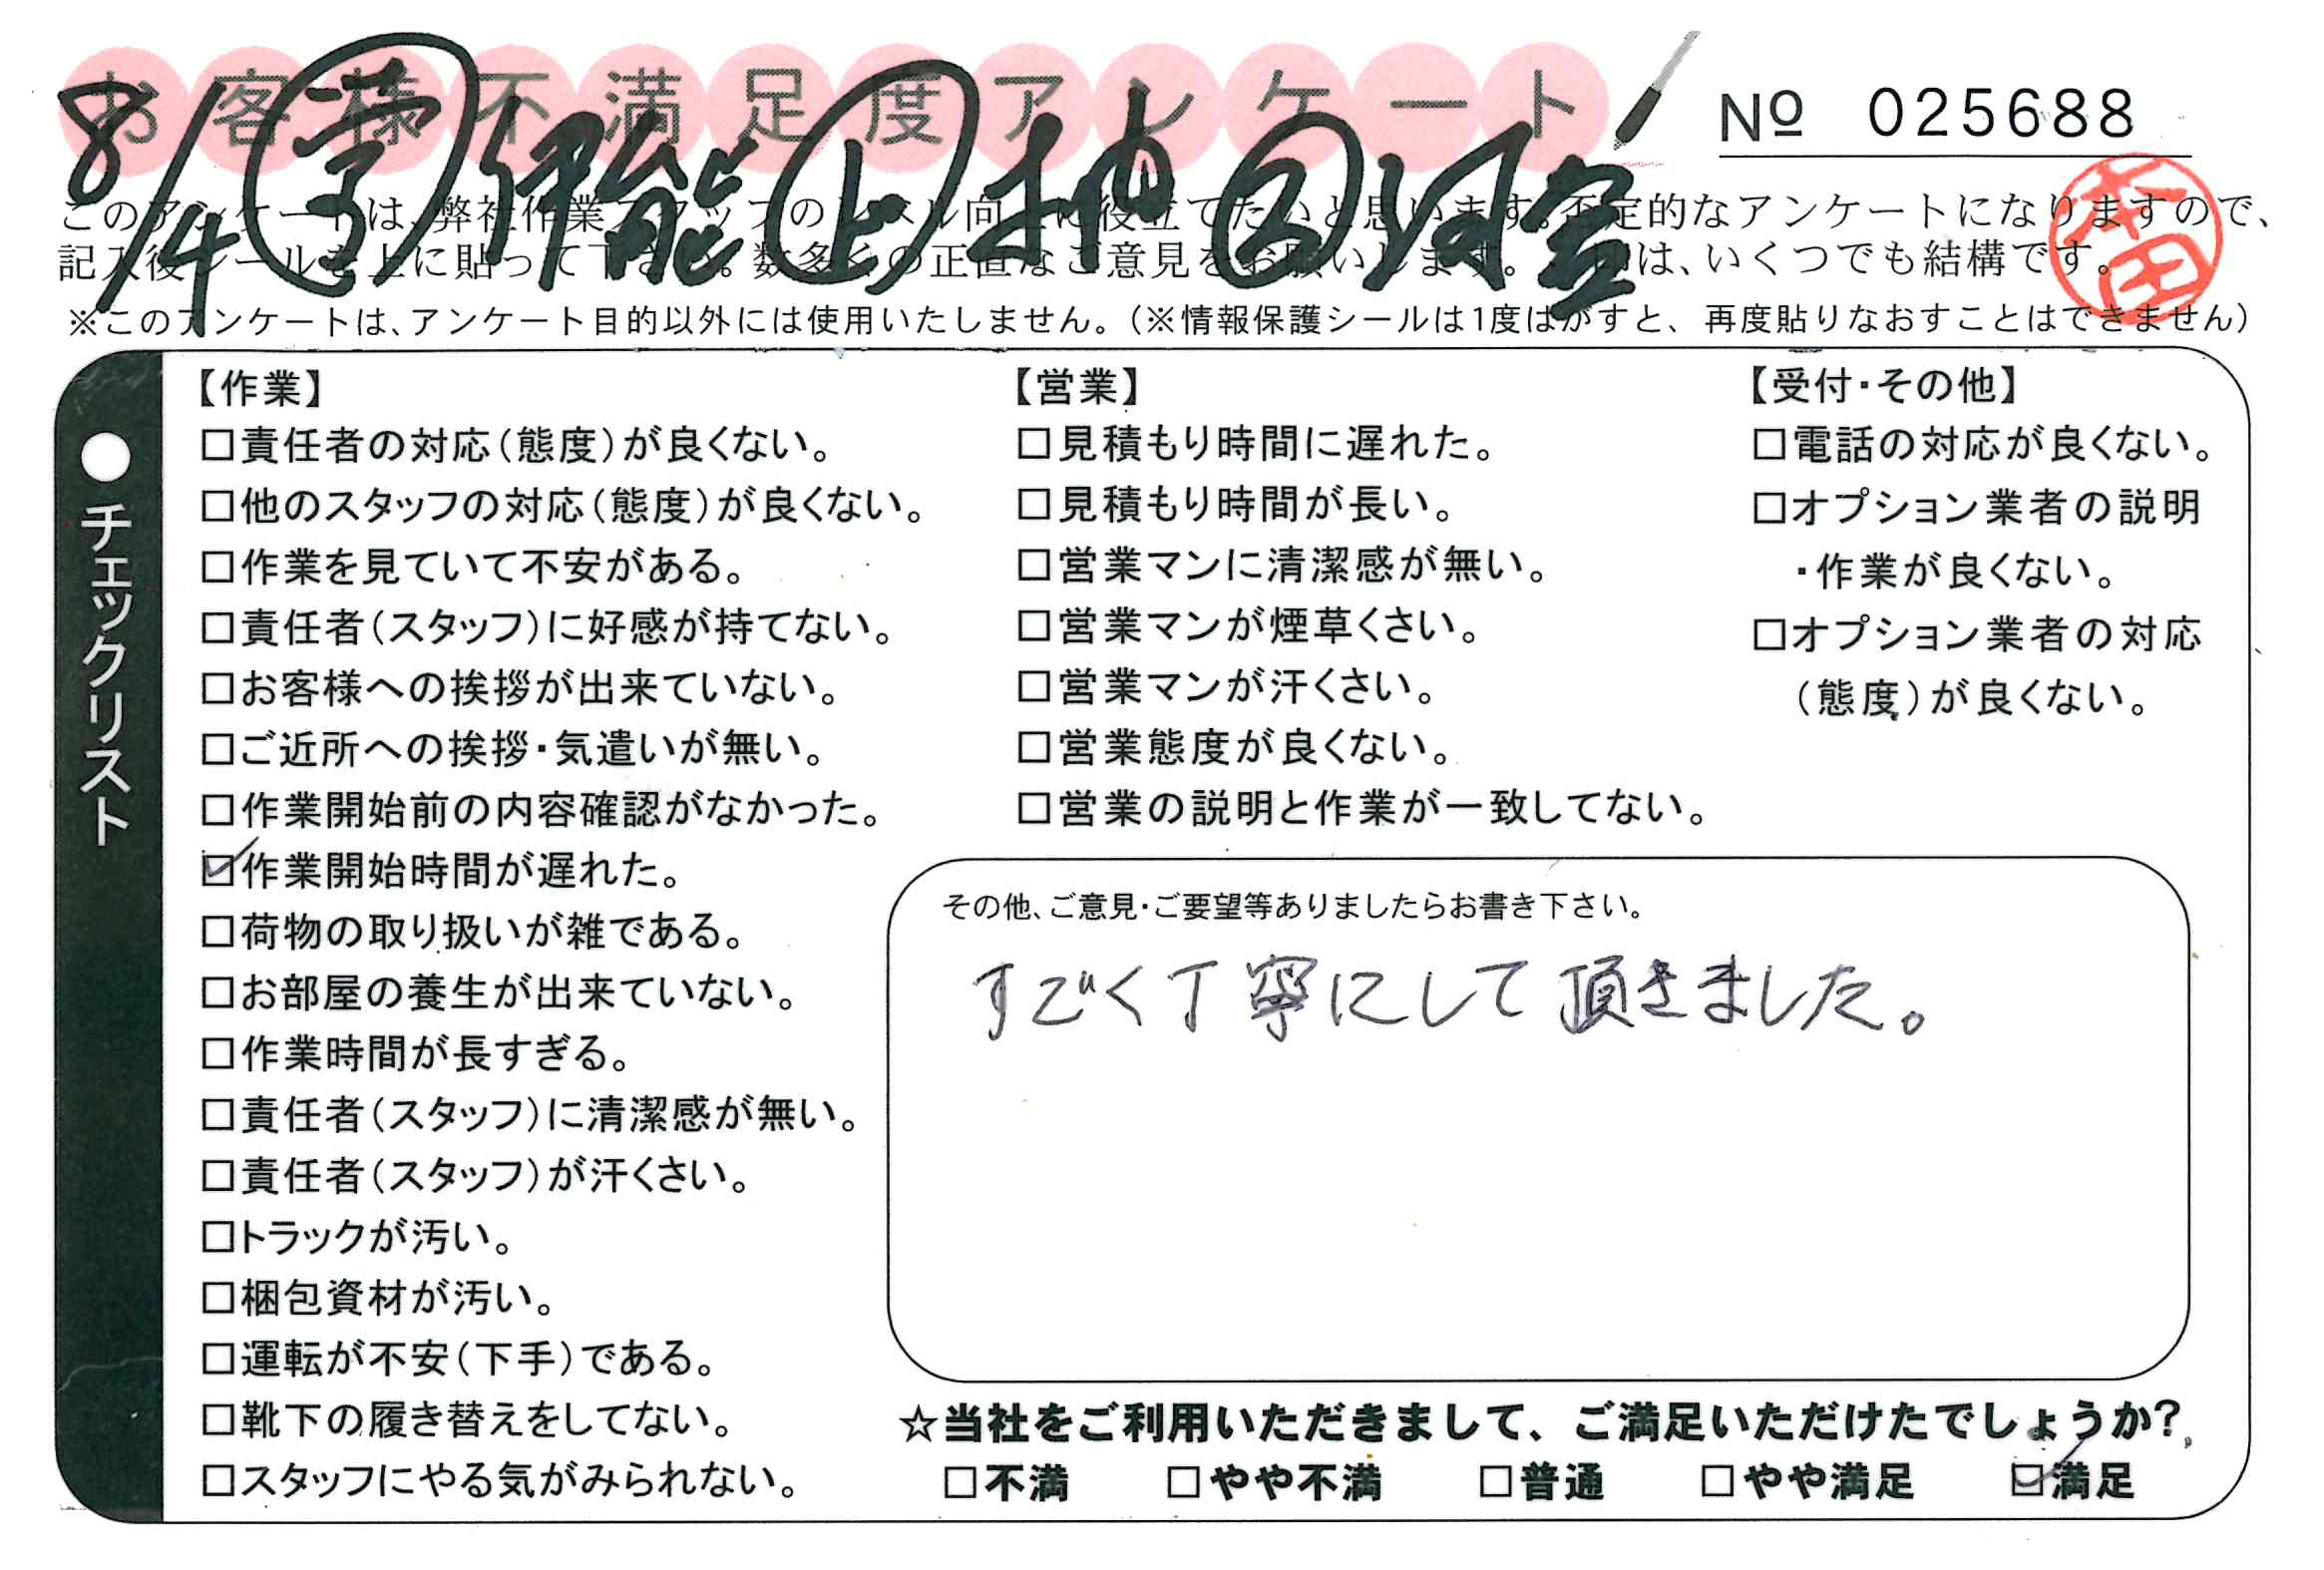 お客様不満足度アンケート
№ 025688
8/4 営 伊能 上 柚 回 河室
本田
このアンケートは、弊社作業スタッフのレベル向上に役立てたいと思います。否定的なアンケートになりますので、
記入後シールを上に貼って下さい。数多くの正直なご意見をお願いします。 印は、いくつでも結構です。
※このアンケートは、アンケート目的以外には使用いたしません。(※情報保護シールは1度はがすと、再度貼りなおすことはできません)
●チェックリスト
【作業】
□責任者の対応(態度)が良くない。
□他のスタッフの対応(態度)が良くない。
□作業を見ていて不安がある。
□責任者(スタッフ)に好感が持てない。
□お客様への挨拶が出来ていない。
□ご近所への挨拶・気遣いが無い。
□作業開始前の内容確認がなかった。
☑作業開始時間が遅れた。
□荷物の取り扱いが雑である。
□お部屋の養生が出来ていない。
□作業時間が長すぎる。
□責任者(スタッフ)に清潔感が無い。
□責任者(スタッフ)が汗くさい。
□トラックが汚い。
□梱包資材が汚い。
□運転が不安(下手)である。
□靴下の履き替えをしてない。
□スタッフにやる気がみられない。
【営業】
□見積もり時間に遅れた。
□見積もり時間が長い。
□営業マンに清潔感が無い。
□営業マンが煙草くさい。
□営業マンが汗くさい。
□営業態度が良くない。
□営業の説明と作業が一致してない。
【受付・その他】
□電話の対応が良くない。
□オプション業者の説明
・作業が良くない。
□オプション業者の対応
(態度)が良くない。
その他、ご意見・ご要望等ありましたらお書き下さい。
すごく丁寧にして頂きました。
☆当社をご利用いただきまして、ご満足いただけたでしょうか?
□不満 □やや不満 □普通 □やや満足 ☑満足